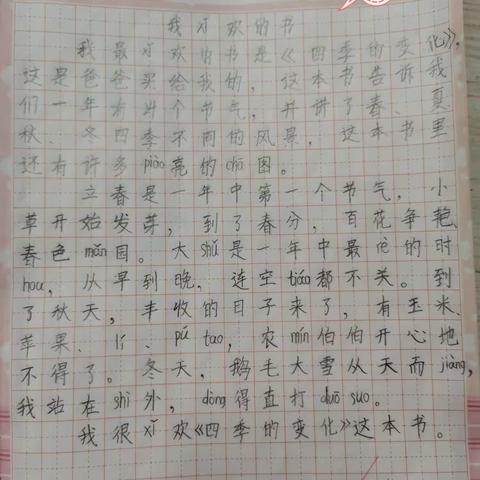 我xǐ欢的书
我最xǐ欢的书是《四季的变化》,
这是爸爸买给我的,这本书告诉我
们一年有24个节气,并讲了春、夏
秋、冬四季不同的风景,这本书里
还有许多piào亮的chā图。
立春是一年中第一个节气,小
草开始发芽,到了春分,百花争艳、
春色mǎn园。大shǔ是一年中最rè的时
hou,从早到晚,连空tiáo都不关。到
了秋天,丰收的日子来了,有玉米、
苹果、lí、pú tao,农mín伯伯开心地
不得了。冬天,鹅毛大雪从天而jiàng,
我站在shì外,dòng得直打duō suo。
我很xǐ欢《四季的变化》这本书。